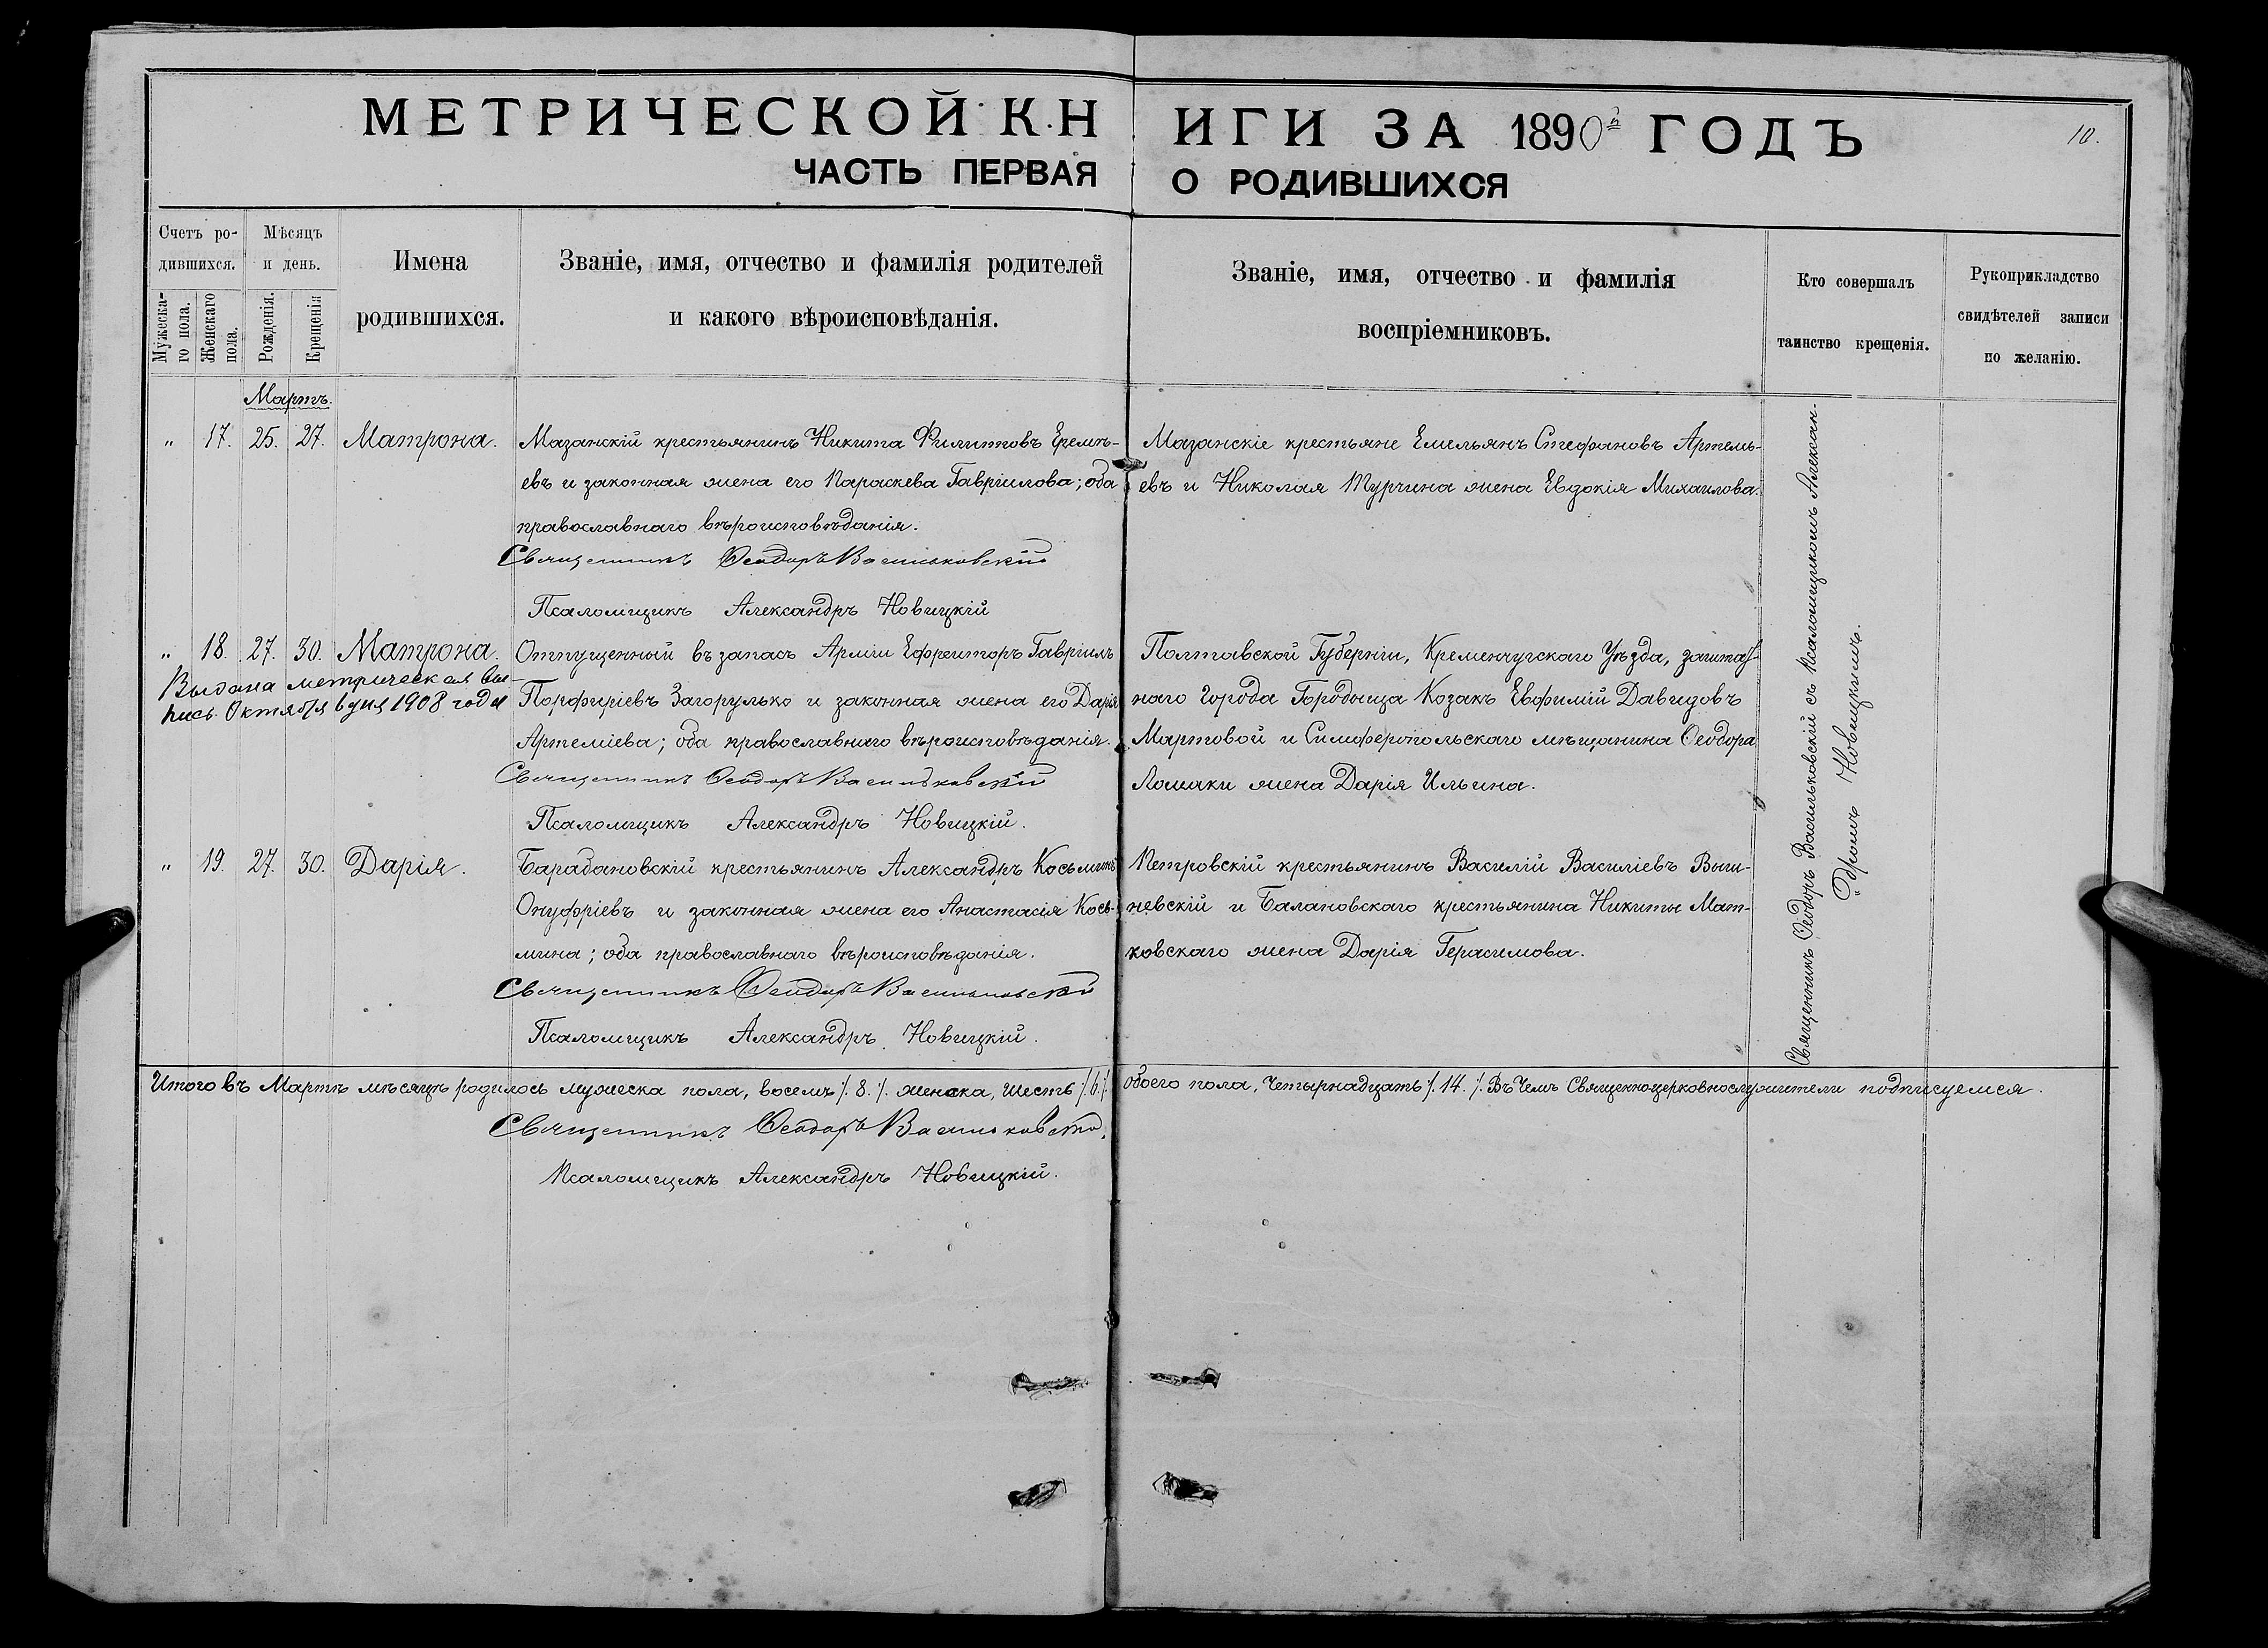 МЕТРИЧЕСКОЙ КНИГИ ЗА 1890й ГОДЪ
10.
ЧАСТЬ ПЕРВАЯ О РОДИВШИХСЯ
Счетъ ро-
дившихся.
Мужеска-
го пола.
Женскаго
пола.
Мѣсяцъ
и день.
Рожденія.
Крещенія
Имена
родившихся.
Званіе, имя, отчество и фамилія родителей
и какого вѣроисповѣданія.
Званіе, имя, отчество и фамилія
воспріемниковъ.
Кто совершалъ
таинство крещенія.
Рукоприкладство
свидѣтелей записи
по желанію.
Мартъ.
" 17. 25. 27. Матрона.
Мазанскій крестьянинъ Никита Филиповъ Еремѣ-
евъ и законная жена его Параскева Гавріилова; оба
православнаго вѣроисповѣданія.
Священникъ Ѳеодоръ Васильковскій
Псаломщикъ Александръ Новицкій
Мазанскіе крестьяне Емельянъ Стефановъ Артемь-
евъ и Николая Турчина жена Евдокія Михаилова.
" 18. 27. 30. Матрона.
Выдана метрическая вы-
пись Октября 6 дня 1908 года
Отпущенный въ запасъ Арміи Ефрейторъ Гавріилъ
Порфиріевъ Загорулько и законная жена его Дарія
Артеміева; оба православнаго вѣроисповѣданія.
Священникъ Ѳеодоръ Васильковскій
Псаломщикъ Александръ Новицкій.
Полтавской Губерніи, Кременчугскаго Уѣзда, заштат-
наго Города Городища Козакъ Евфимій Давидовъ
Мартовой и Симферопольскаго мѣщанина Ѳеодора
Ломаки жена Дарія Ильина.
" 19. 27. 30. Дарія.
Барабановскій крестьянинъ Александръ Косьминъ
Онуфріевъ и законная жена его Анастасія Кось-
мина; оба православнаго вѣроисповѣданія.
Священникъ Ѳеодоръ Васильковскій
Псаломщикъ Александръ Новицкій.
Петровскій крестьянинъ Василій Василіевъ Выш-
невскій и Балановскаго крестьянина Никиты Мат-
ковскаго жена Дарія Герасимова.
Священникъ Ѳеодоръ Васильковскій съ Псаломщикомъ Алексан-
"дромъ Новицкимъ.
Итого въ Мартѣ мѣсяцѣ родилось мужеска пола, восемъ /. 8. /. женска, шесть /. 6. /. обоего пола, Четырнадцать /. 14. /. Въ Чемъ Священноцерковнослужители подписуемся.
Священникъ Ѳеодоръ Васильковскій
Псаломщикъ Александръ Новицкій.